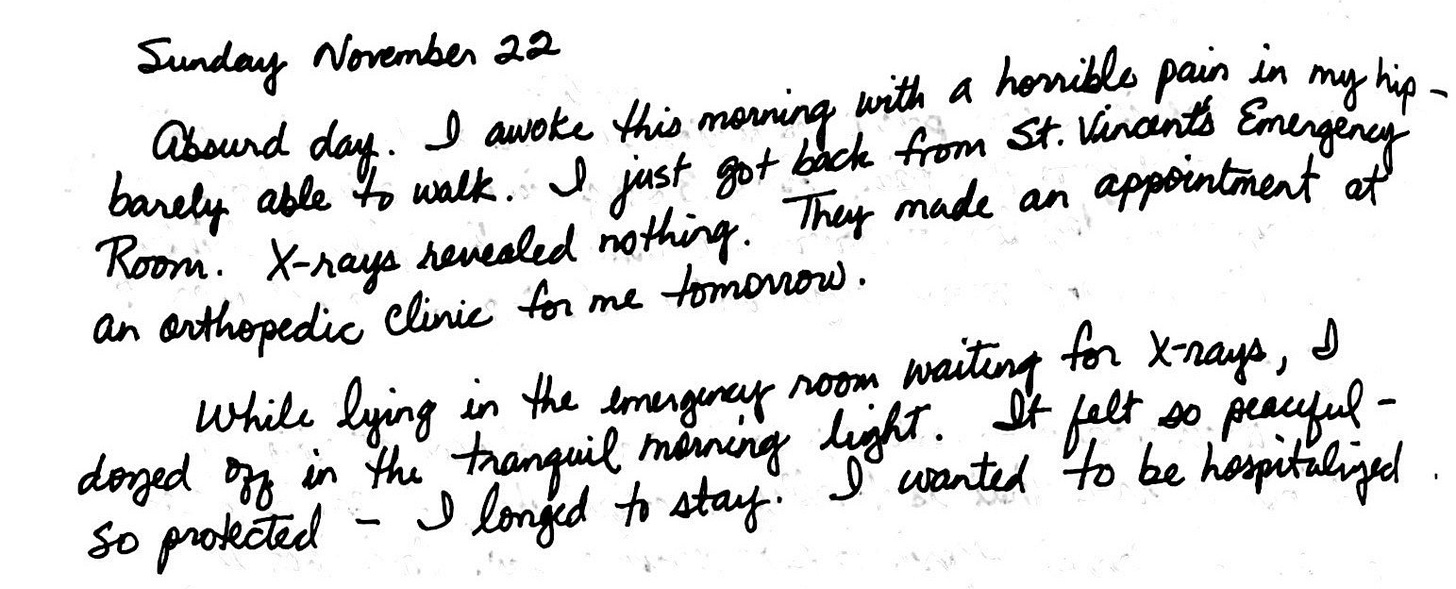 Sunday November 22
Absurd day. I awoke this morning with a horrible pain in my hip -
barely able to walk. I just got back from St. Vincent's Emergency
Room. X-rays revealed nothing. They made an appointment at
an orthopedic clinic for me tomorrow.
While lying in the emergency room waiting for X-rays, I
dozed off in the tranquil morning light. It felt so peaceful -
so protected - I longed to stay. I wanted to be hospitalized.